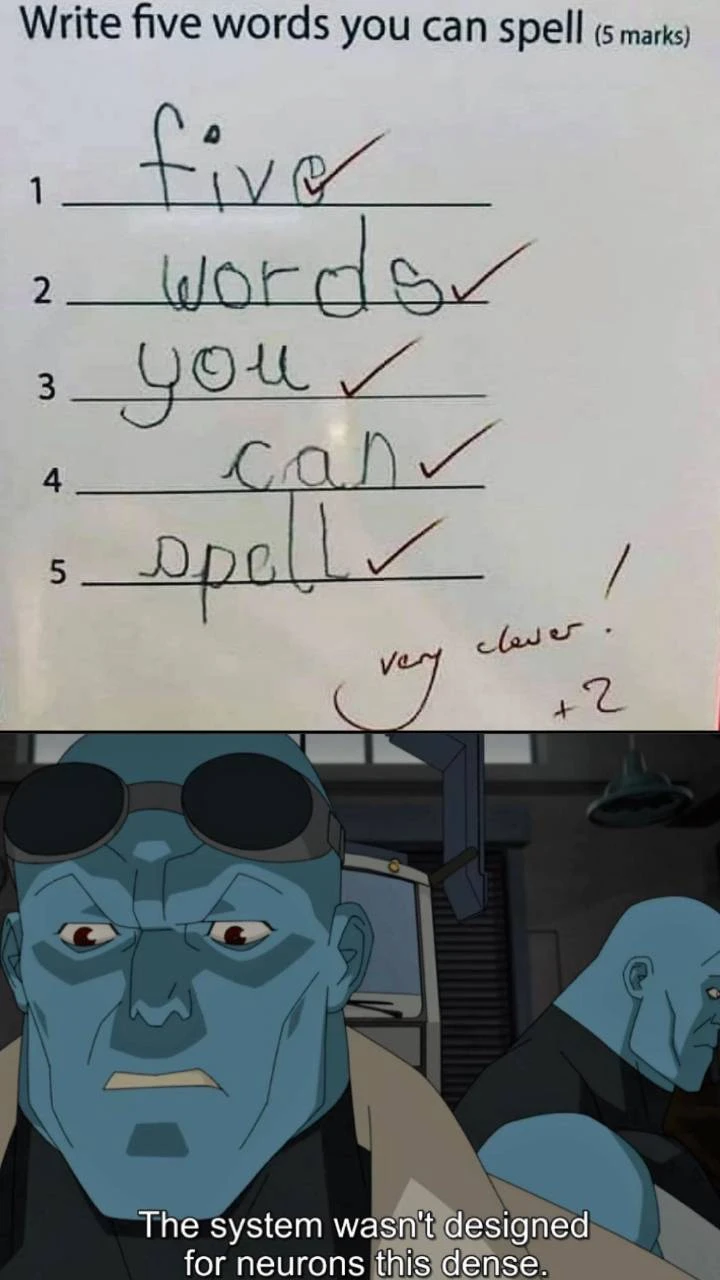 Write five words you can spell (5 marks)
1 five
2 words
3 you
4 can
5 spell
very clever!
+2
The system wasn't designed
for neurons this dense.